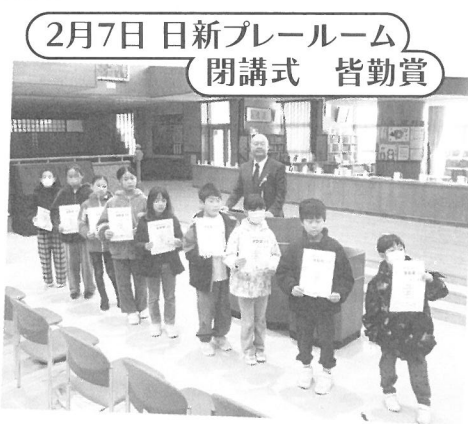 2月7日 日新プレールーム
閉講式 皆勤賞